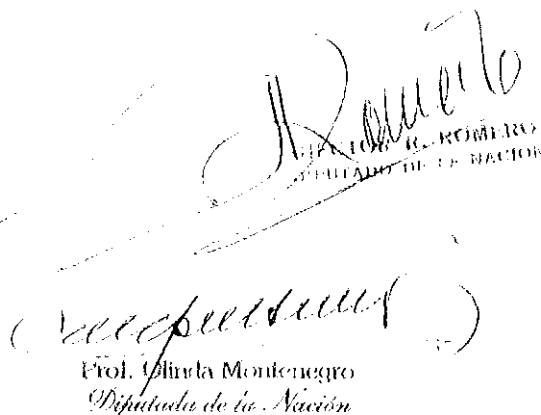 HECTOR R. ROMERO
DIPUTADO DE LA NACION
Prof. Olinda Montenegro
Diputada de la Nación